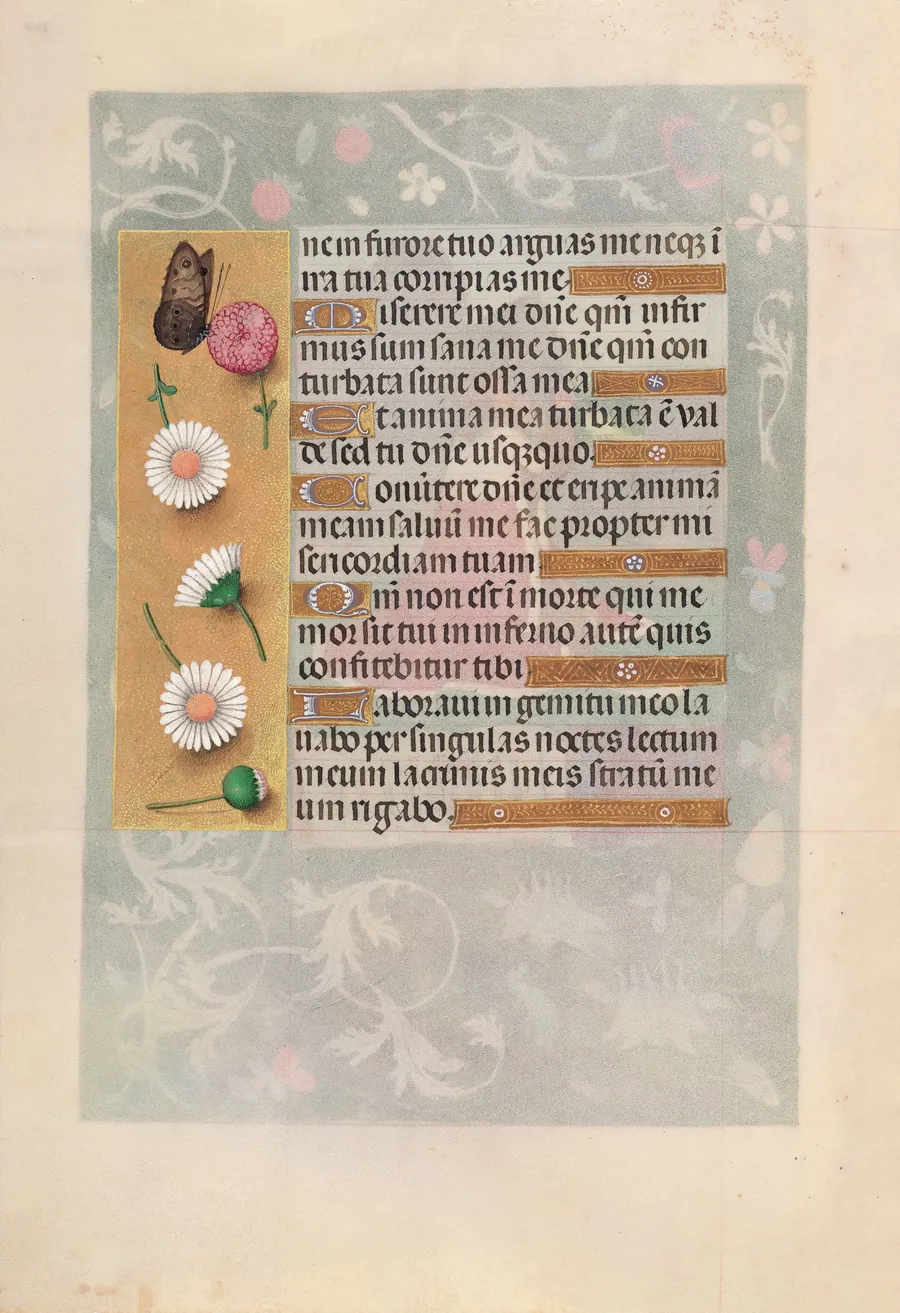 ne in furore tuo arguas me neqꝫ ī
ira tua corripias me.
Miserere mei dn̄e qm̄ infir
mus sum sana me dn̄e qm̄ con
turbata sunt ossa mea
Et anima mea turbata ē val
de sed tu dn̄e usqꝫquo.
Conūtere dn̄e et eripe animā
meam saluū me fac propter mi
sericordiam tuam.
Qm̄ non est ī morte qui me
mor sit tui in inferno autē quis
confitebitur tibi.
Laboraui in gemitu meo la
uabo per singulas noctes lectum
meum lacrimis meis stratū me
um rigabo.